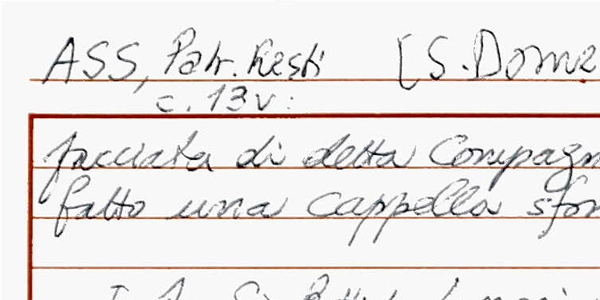 ASS, Patr. Resti [S. Dome
c. 13v:
facciata di detta Compagn
fatto una cappella sfon